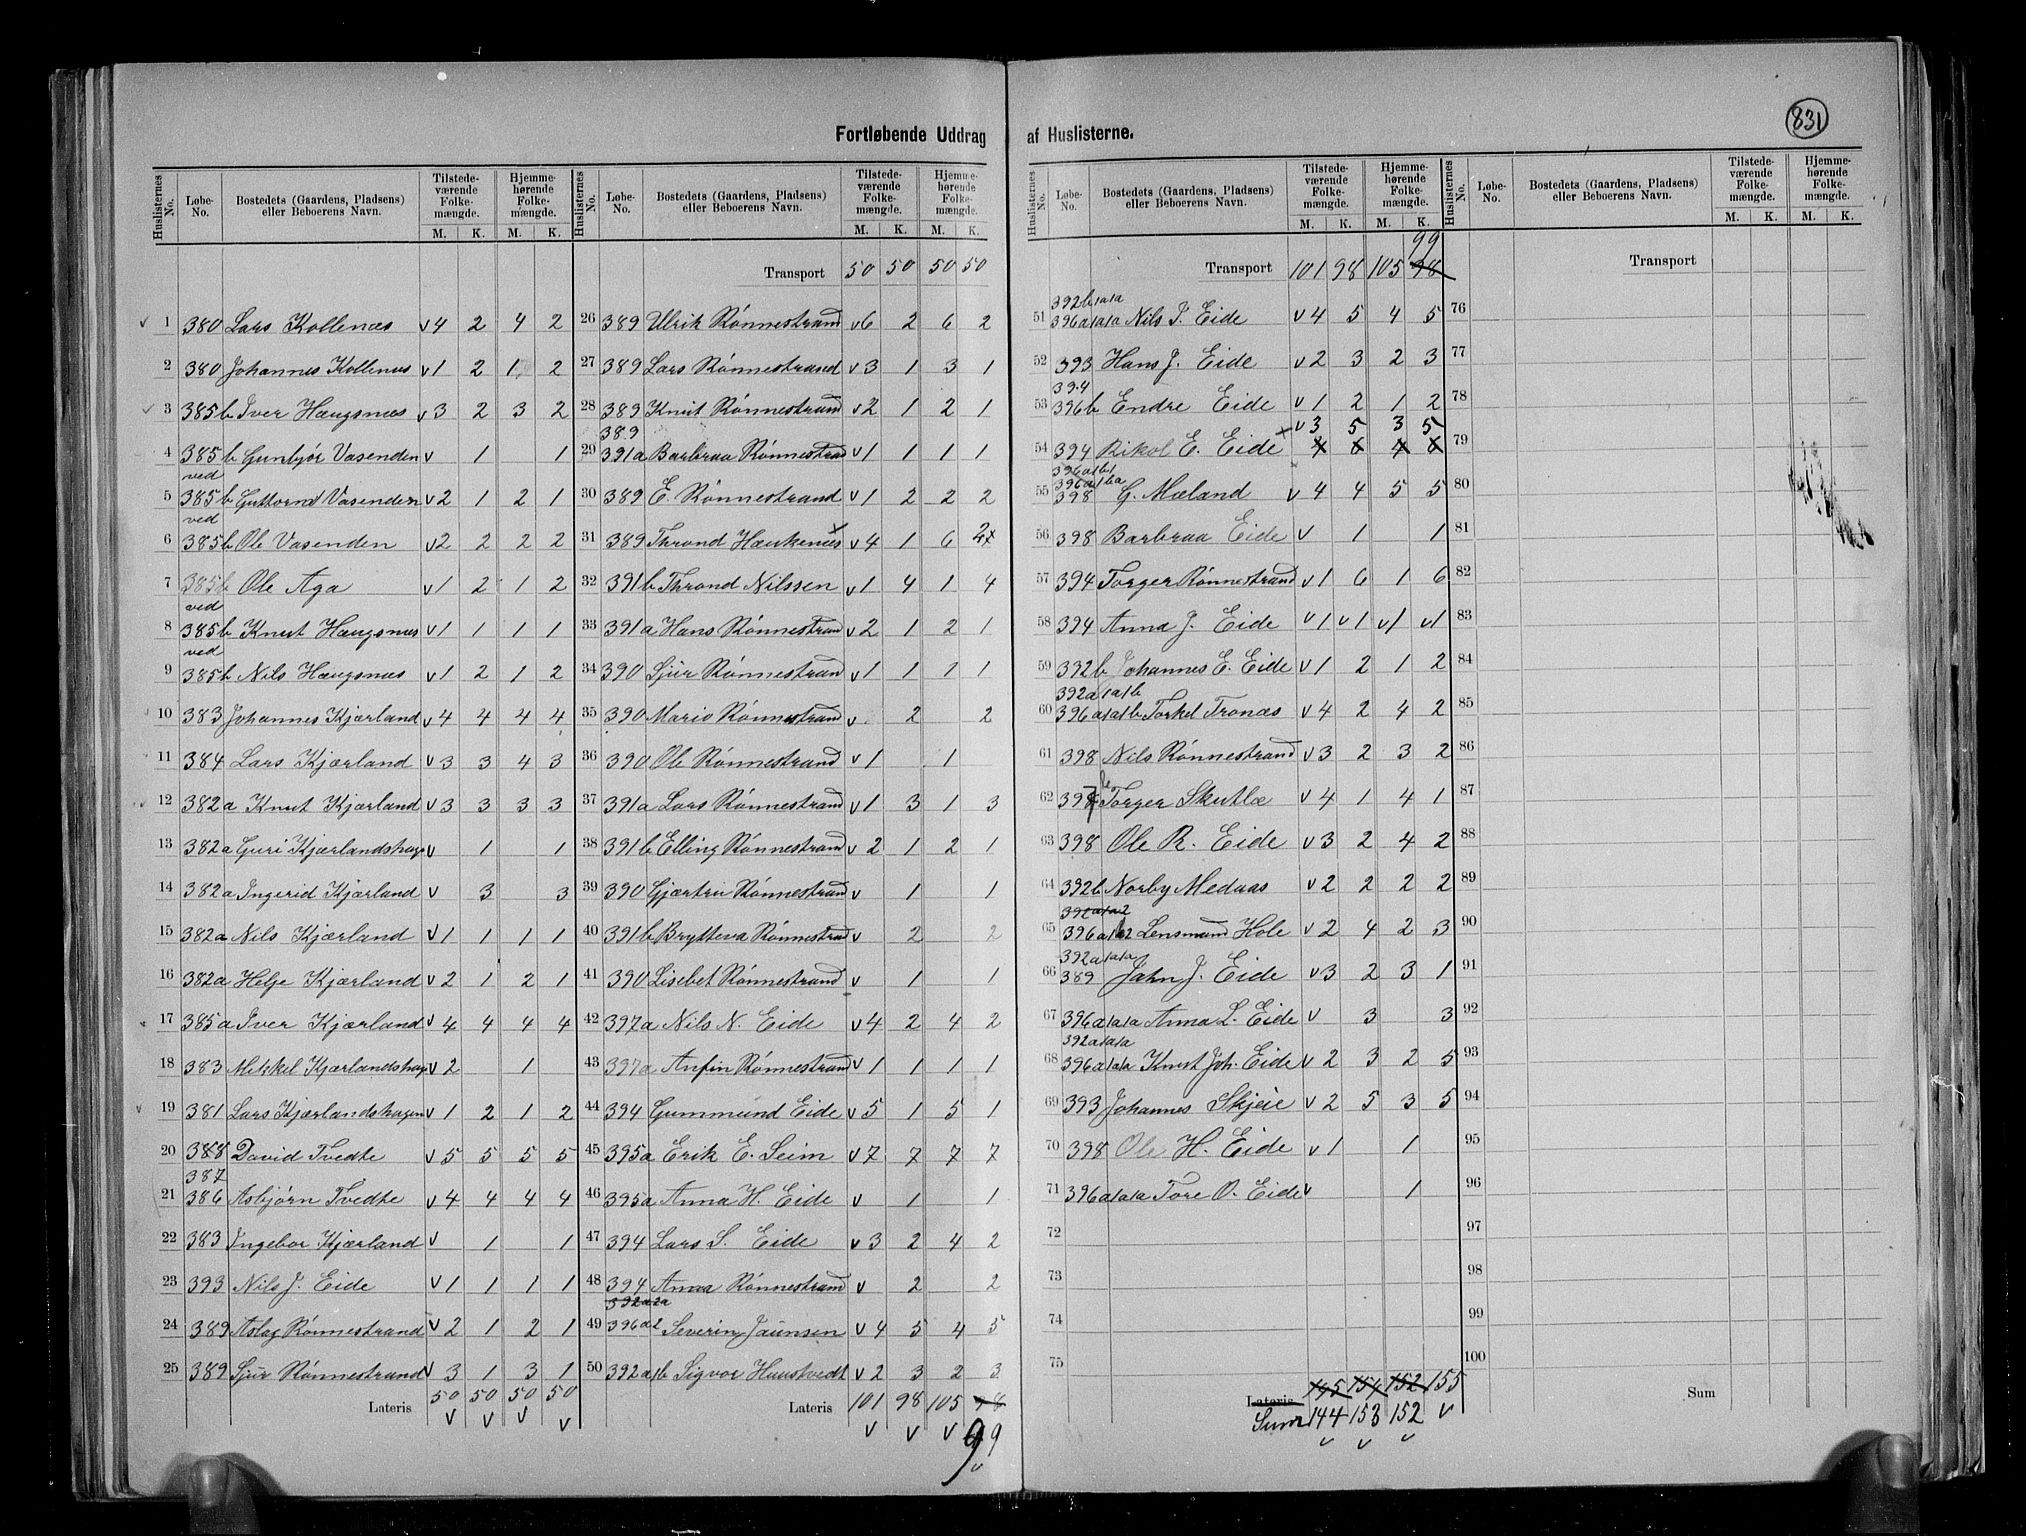 831
Fortløbende Uddrag af Huslisterne.
Huslisternes No. Løbe-No. Bostedets (Gaardens, Pladsens) eller Beboerens Navn. Tilstedeværende Folkemængde. M. K. Hjemmehørende Folkemængde. M. K.
1 380 Lars Kollenæs v 4 2 4 2
2 380 Johannes Kollenæs v 1 2 1 2
3 385b Iver Haugsnæs v 3 2 3 2
4 385b Gunbjør Vasenden v 1 1
ved
5 385b Guttorm Vasenden v 2 1 2 1
ved
6 385b Ole Vasenden v 2 2 2 2
7 385b Ole Aga v 1 2 1 2
ved
8 385b Knut Haugsnæs v 1 1 1 1
ved
9 385b Nils Haugsnæs v 1 2 1 2
10 383 Johannes Kjærland v 4 4 4 4
11 384 Lars Kjærland v 3 3 4 3
12 382a Knut Kjærland v 3 3 3 3
13 382a Guri Kjærlandshage v 1 1
14 382a Ingerid Kjærland v 3 3
15 382a Nils Kjærland v 1 1 1 1
16 382a Helje Kjærland v 2 1 2 1
17 385a Iver Kjærland v 4 4 4 4
18 383 Mikkel Kjærlandshage v 2 1
19 381 Lars Kjærlandshagen v 1 2 1 2
20 388 David Tvedte v 5 5 5 5
387
21 386 Asbjørn Tvedte v 4 4 4 4
22 383 Ingebor Kjærland v 1 1
23 393 Nils J. Eide v 1 1 1 1
24 389 Aslag Rønnestrand v 2 1 2 1
25 389 Sjur Rønnestrand v 3 1 3 1
Lateris 50 50 50 50
v v v v
Huslisternes No. Løbe-No. Bostedets (Gaardens, Pladsens) eller Beboerens Navn. Tilstedeværende Folkemængde. M. K. Hjemmehørende Folkemængde. M. K.
Transport 50 50 50 50
26 389 Ulrik Rønnestrand v 6 2 6 2
27 389 Lars Rønnestrand v 3 1 3 1
28 389 Knut Rønnestrand v 2 1 2 1
389
29 391a Barbraa Rønnestrand v 1 1 1 1
30 389 E. Rønnestrand v 1 2 2 2
31 389 Thrond Haukenæs x v 4 1 6 2x
32 391b Thrond Nilssen v 1 4 1 4
33 391a Hans Rønnestrand v 2 1 2 1
34 390 Sjur Rønnestrand v 1 1 1 1
35 390 Mario Rønnestrand v 2 2
36 390 Ole Rønnestrand v 1 1
37 391a Lars Rønnestrand v 1 3 1 3
38 391b Elling Rønnestrand v 2 1 2 1
39 390 Gjærtru Rønnestrand v 1 1
40 391b Brytteva Rønnestrand v 2 2
41 390 Lisebet Rønnestrand v 1 1
42 397a Nils N. Eide v 4 2 4 2
43 397a Anfin Rønnestrand v 1 1 1 1
44 394 Gummund Eide v 5 1 5 1
45 395a Erik E. Seim v 7 7 7 7
46 395a Anna H. Eide v 1 1
47 394 Lars S. Eide v 3 2 4 2
48 394 Anna Rønnestrand v 2 2
392a2a
49 396a2 Severin Jaunsen v 4 5 4 5
50 392a1b Sigvor Haustvedt v 2 3 2 3
Lateris 101 98 105 98
v v v 99
v
Huslisternes No. Løbe-No. Bostedets (Gaardens, Pladsens) eller Beboerens Navn. Tilstedeværende Folkemængde. M. K. Hjemmehørende Folkemængde. M. K.
99
Transport 101 98 105 98
392b1a1a
51 396a1a1a Nils J. Eide v 4 5 4 5
52 393 Hans J. Eide v 2 3 2 3
394
53 396b Endre Eide v 1 2 1 2
v 3 5 3 5
54 394 Rikol E. Eide x 4 6 4 6
396a1b1
396a1ba
55 398 G. Mæland v 4 4 5 5
56 398 Barbraa Eide v 1 1
57 394 Torger Rønnestrand v 1 6 1 6
58 394 Anna J. Eide v 1 v 1 v 1 v 1
59 392b Johannes E. Eide v 1 2 1 2
392a1a1b
60 396a1a1b Torkel Tronæs v 4 2 4 2
61 398 Nils Rønnestrand v 3 2 3 2
62 397b Torger Skutlæ v 4 1 4 1
63 398 Ole R. Eide v 3 2 4 2
64 392b Norby Medaas v 2 2 2 2
392a1a2
65 396a1b2 Lensmand Hole v 2 4 2 3
392a1a1a
66 389 Jahn J. Eide v 3 2 3 1
67 396a1a1a Anna L. Eide v 3 3
392a1a1a
68 396a1a1a Knut Joh. Eide v 2 3 2 5
69 393 Johannes Skjeie v 2 5 3 5
70 398 Ole H. Eide v 1 1
71 396a1a1a Tore O. Eide v 1
72
73
74
75
Lateris 145 154 152 155
Sum 144 153 152 v
v v v
Huslisternes No. Løbe-No. Bostedets (Gaardens, Pladsens) eller Beboerens Navn. Tilstedeværende Folkemængde. M. K. Hjemmehørende Folkemængde. M. K.
Transport
76
77
78
79
80
81
82
83
84
85
86
87
88
89
90
91
92
93
94
95
96
97
98
99
100
Sum